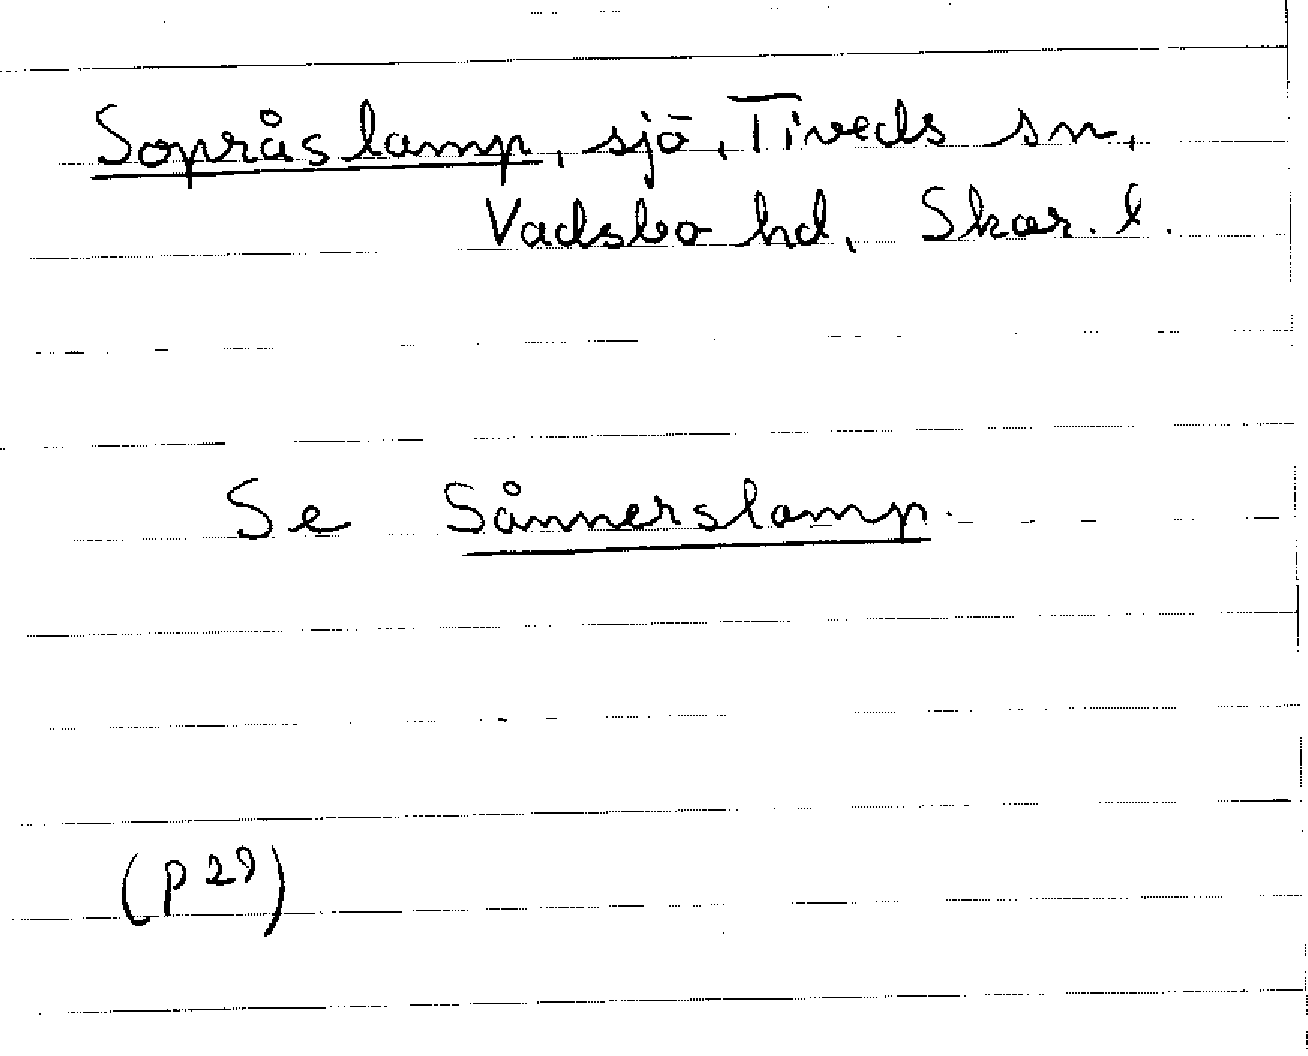 Sopråslamp, sjö, Tiveds sn,
Vadsbo hd, Skar. l.
Se Sånnerslamp.
(p 29)